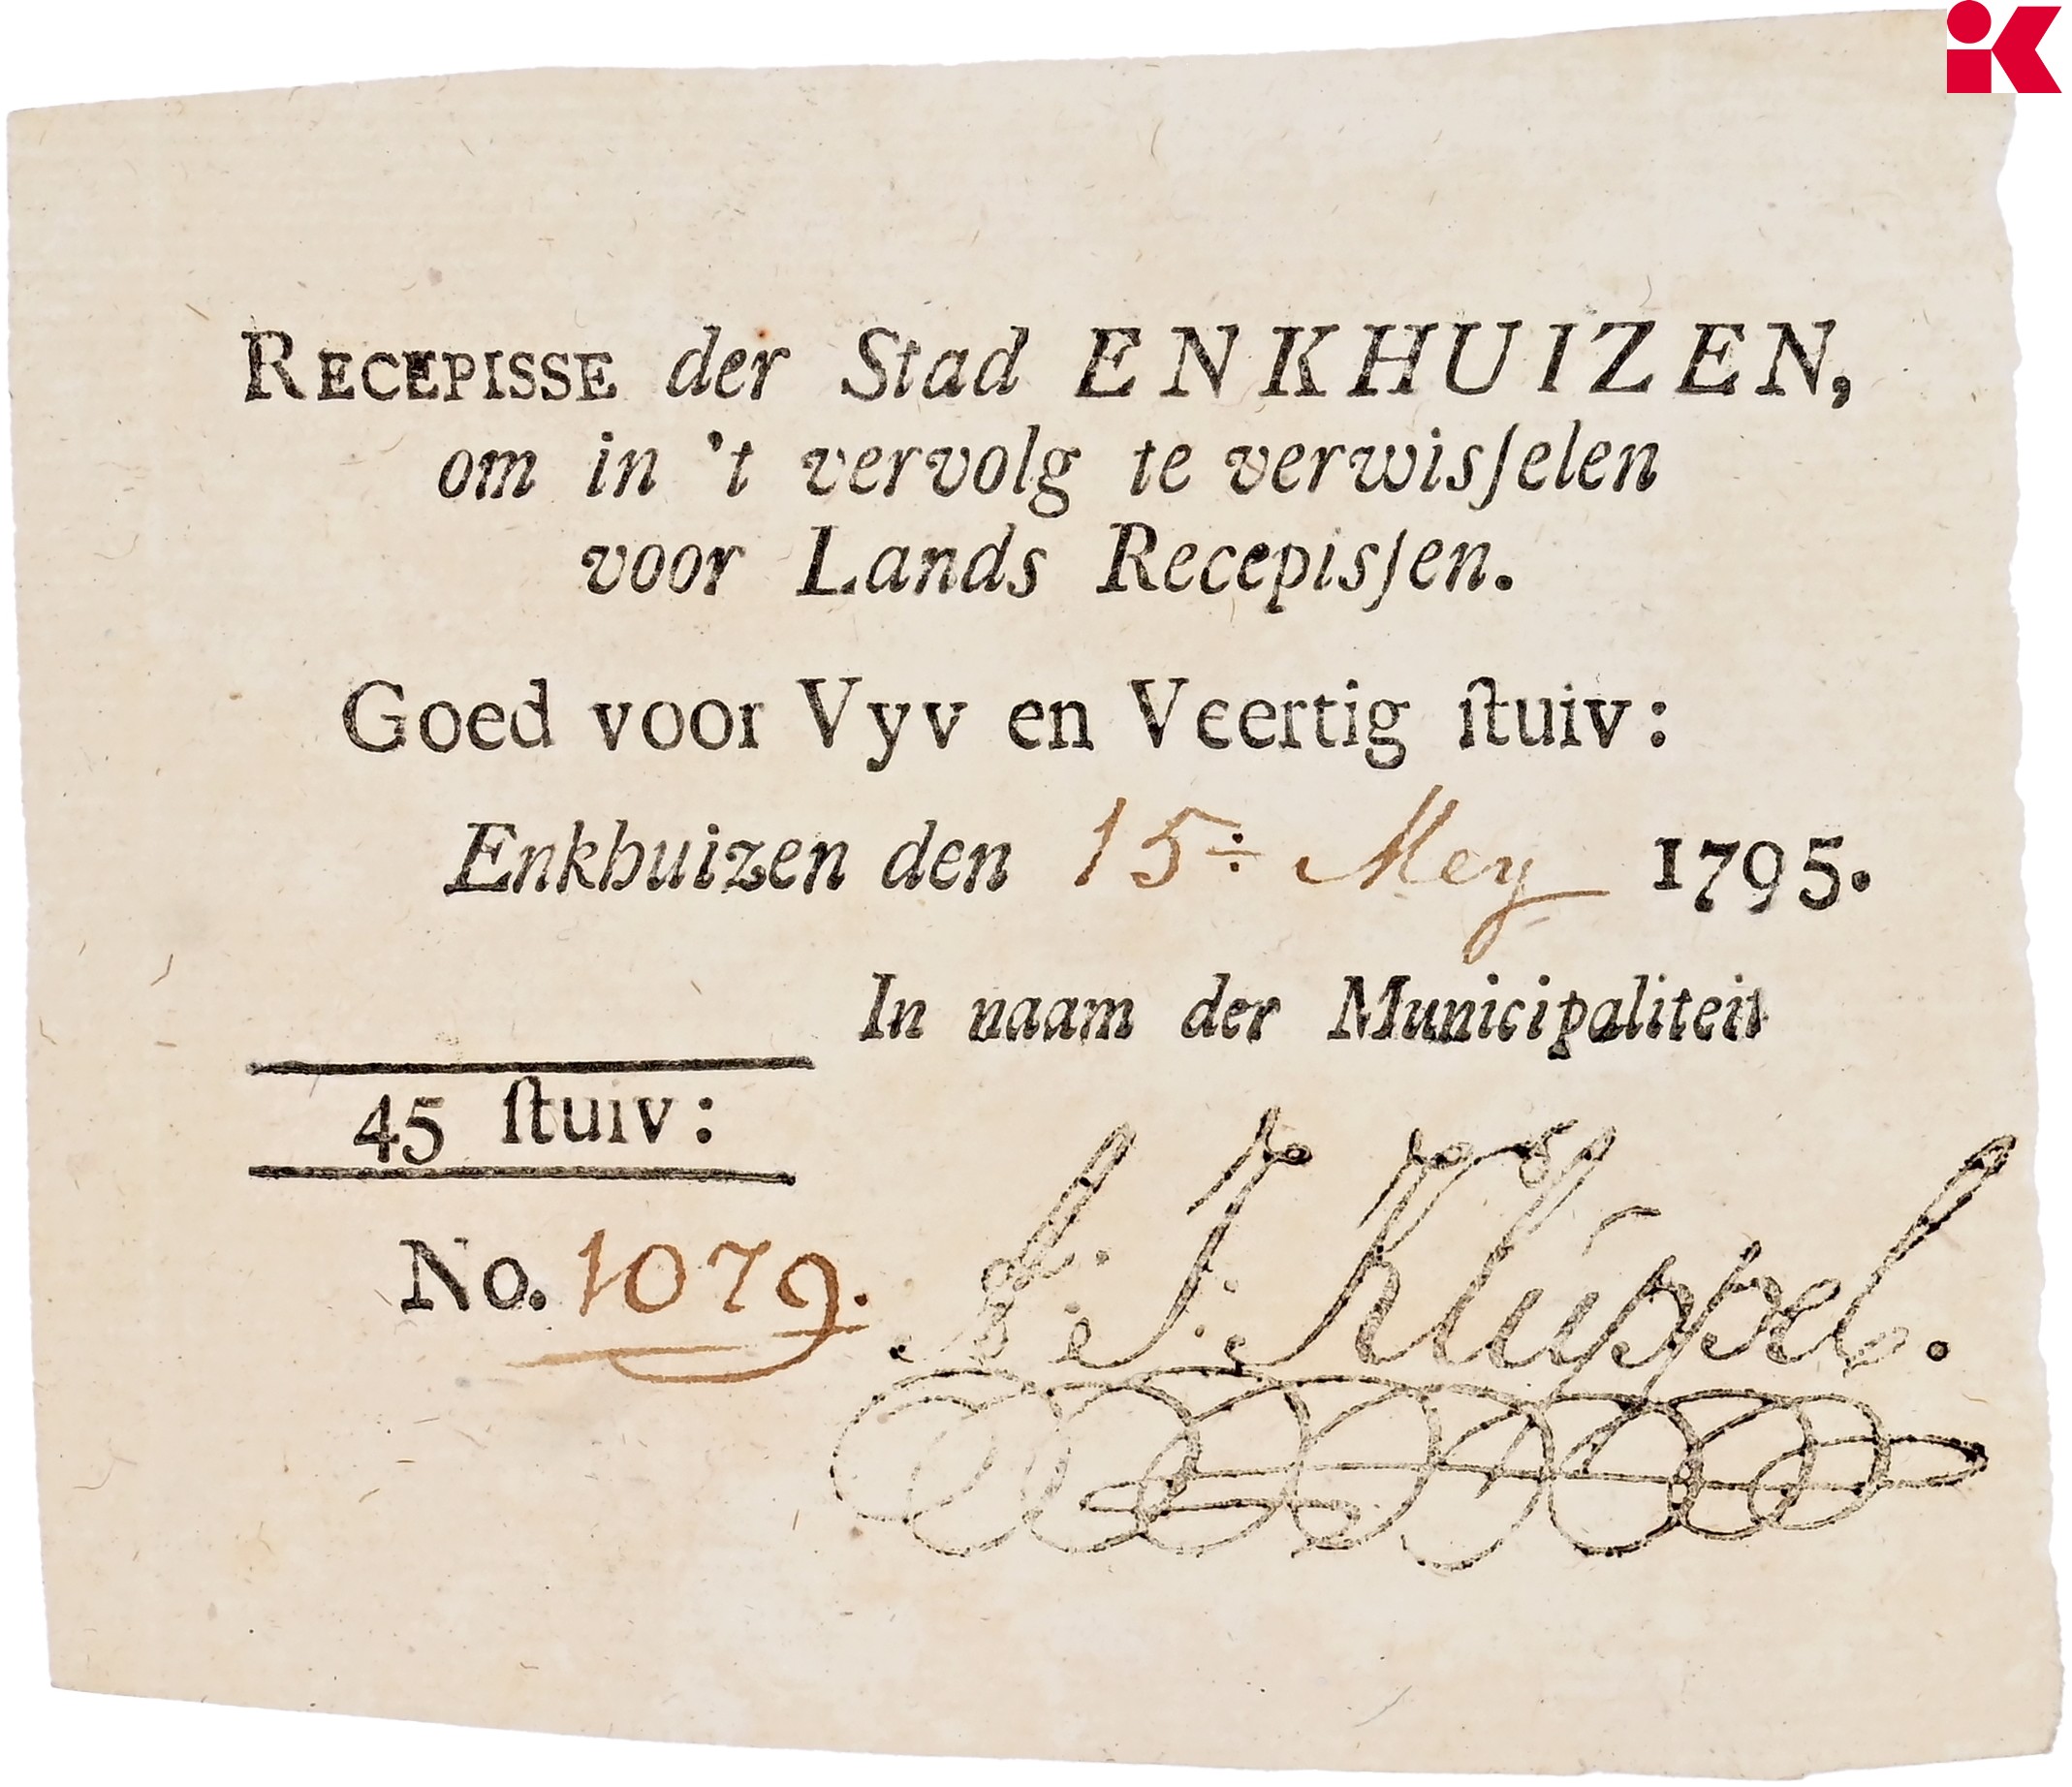 RECEPISSE der Stad ENKHUIZEN,
om in 't vervolg te verwisſelen
voor Lands Recepisſen.
Goed voor Vyv en Veertig ſtuiv:
Enkhuizen den 15: Mey 1795.
In naam der Municipaliteit
45 ſtuiv:
No. 1079.
J: Kluppel.
iK